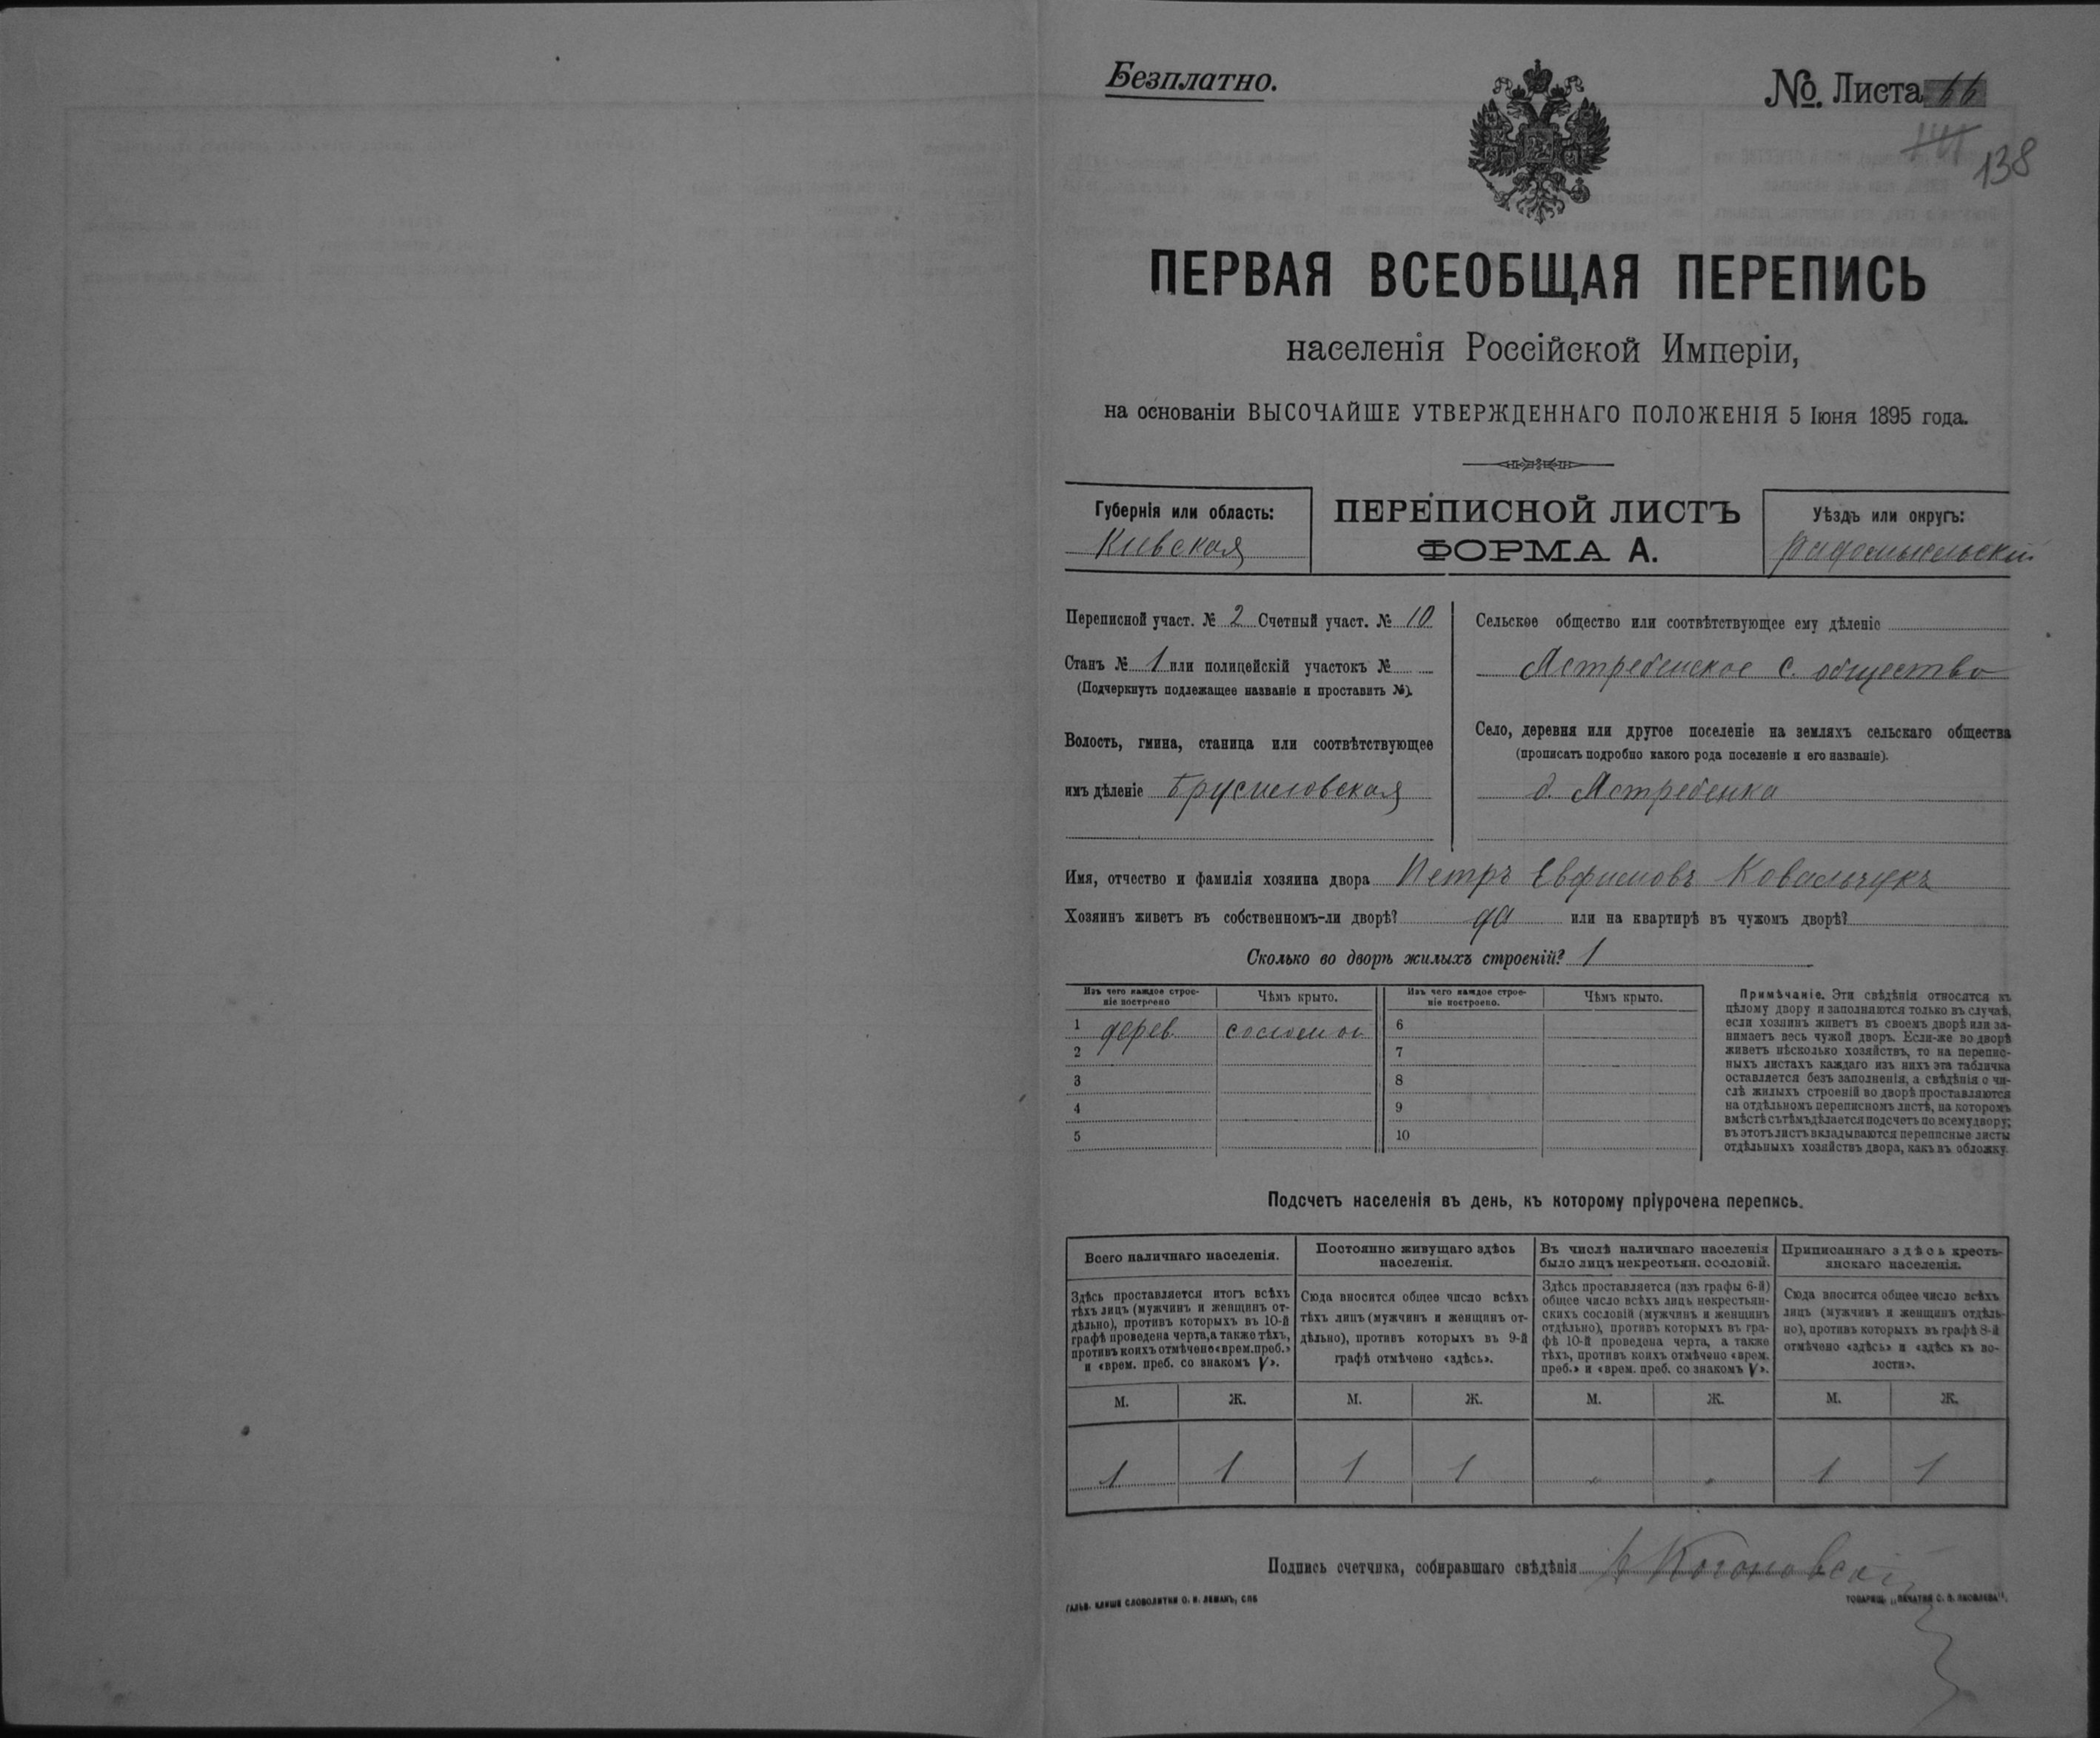 Безплатно.
№ Листа 66
138
ПЕРВАЯ ВСЕОБЩАЯ ПЕРЕПИСЬ
населенія Россійской Имперіи,
на основаніи ВЫСОЧАЙШЕ УТВЕРЖДЕННАГО ПОЛОЖЕНІЯ 5 Іюня 1895 года.
Губернія или область:
Киевская
ПЕРЕПИСНОЙ ЛИСТЪ
ФОРМА А.
Уѣздъ или округъ:
Радомысльскій
Переписной участ. № 2 Счетный участ. № 10
Станъ № 1 или полицейскій участокъ №
(Подчеркнуть подлежащее названіе и проставить №).
Волость, гмина, станица или соотвѣтствующее
имъ дѣленіе Брусиловская
Сельское общество или соотвѣтствующее ему дѣленіе
Ястребенское с. общество
Село, деревня или другое поселеніе на земляхъ сельскаго общества
(прописать подробно какого рода поселеніе и его названіе).
д. Ястребенка
Имя, отчество и фамилія хозяина двора Петръ Евфимовъ Ковальчукъ
Хозяинъ живетъ въ собственномъ-ли дворѣ? да или на квартирѣ въ чужомъ дворѣ?
Сколько во дворѣ жилыхъ строеній? 1
Изъ чего каждое строе-
ніе построено
Чѣмъ крыто.
Изъ чего каждое строе-
ніе построено.
Чѣмъ крыто.
1 дерев. соломой 6
2 7
3 8
4 9
5 10
Примѣчаніе. Эти свѣдѣнія относятся къ
цѣлому двору и заполняются только въ случаѣ,
если хозяинъ живетъ въ своемъ дворѣ или за-
нимаетъ весь чужой дворъ. Если-же во дворѣ
живетъ нѣсколько хозяйствъ, то на перепис-
ныхъ листахъ каждаго изъ нихъ эта табличка
оставляется безъ заполненія, а свѣдѣнія о чи-
слѣ жилыхъ строеній во дворѣ проставляются
на отдѣльномъ переписномъ листѣ, на которомъ
вмѣстѣ съ тѣмъ дѣлается подсчетъ по всему двору;
въ этотъ листъ вкладываются переписные листы
отдѣльныхъ хозяйствъ двора, какъ въ обложку.
Подсчетъ населенія въ день, къ которому пріурочена перепись.
Всего наличнаго населенія.
Здѣсь проставляется итогъ всѣхъ
тѣхъ лицъ (мужчинъ и женщинъ от-
дѣльно), противъ которыхъ въ 10-й
графѣ проведена черта, а также тѣхъ,
противъ коихъ отмѣчено «врем. преб.»
и «врем. преб. со знакомъ V».
Постоянно живущаго здѣсь
населенія.
Сюда вносится общее число всѣхъ
тѣхъ лицъ (мужчинъ и женщинъ от-
дѣльно), противъ которыхъ въ 9-й
графѣ отмѣчено «здѣсь».
Въ числѣ наличнаго населенія
было лицъ некрестьян. сословій.
Здѣсь проставляется (изъ графы 6-й)
общее число всѣхъ лицъ некрестьян-
скихъ сословій (мужчинъ и женщинъ
отдѣльно), противъ которыхъ въ гра-
фѣ 10-й проведена черта, а также
тѣхъ, противъ коихъ отмѣчено «врем.
преб.» и «врем. преб. со знакомъ V».
Приписаннаго здѣсь кресть-
янскаго населенія.
Сюда вносится общее число всѣхъ
лицъ (мужчинъ и женщинъ отдѣль-
но), противъ которыхъ въ графѣ 8-й
отмѣчено «здѣсь» и «здѣсь къ во-
лости».
М. Ж. М. Ж. М. Ж. М. Ж.
1 1 1 1 „ „ 1 1
Подпись счетчика, собиравшаго свѣдѣнія
ГАЛЬВ. КЛИШЕ СЛОВОЛИТНИ О. И. ЛЕМАНЪ, СПБ
ТОВАРИЩ. „ПЕЧАТНЯ С. П. ЯКОВЛЕВА".